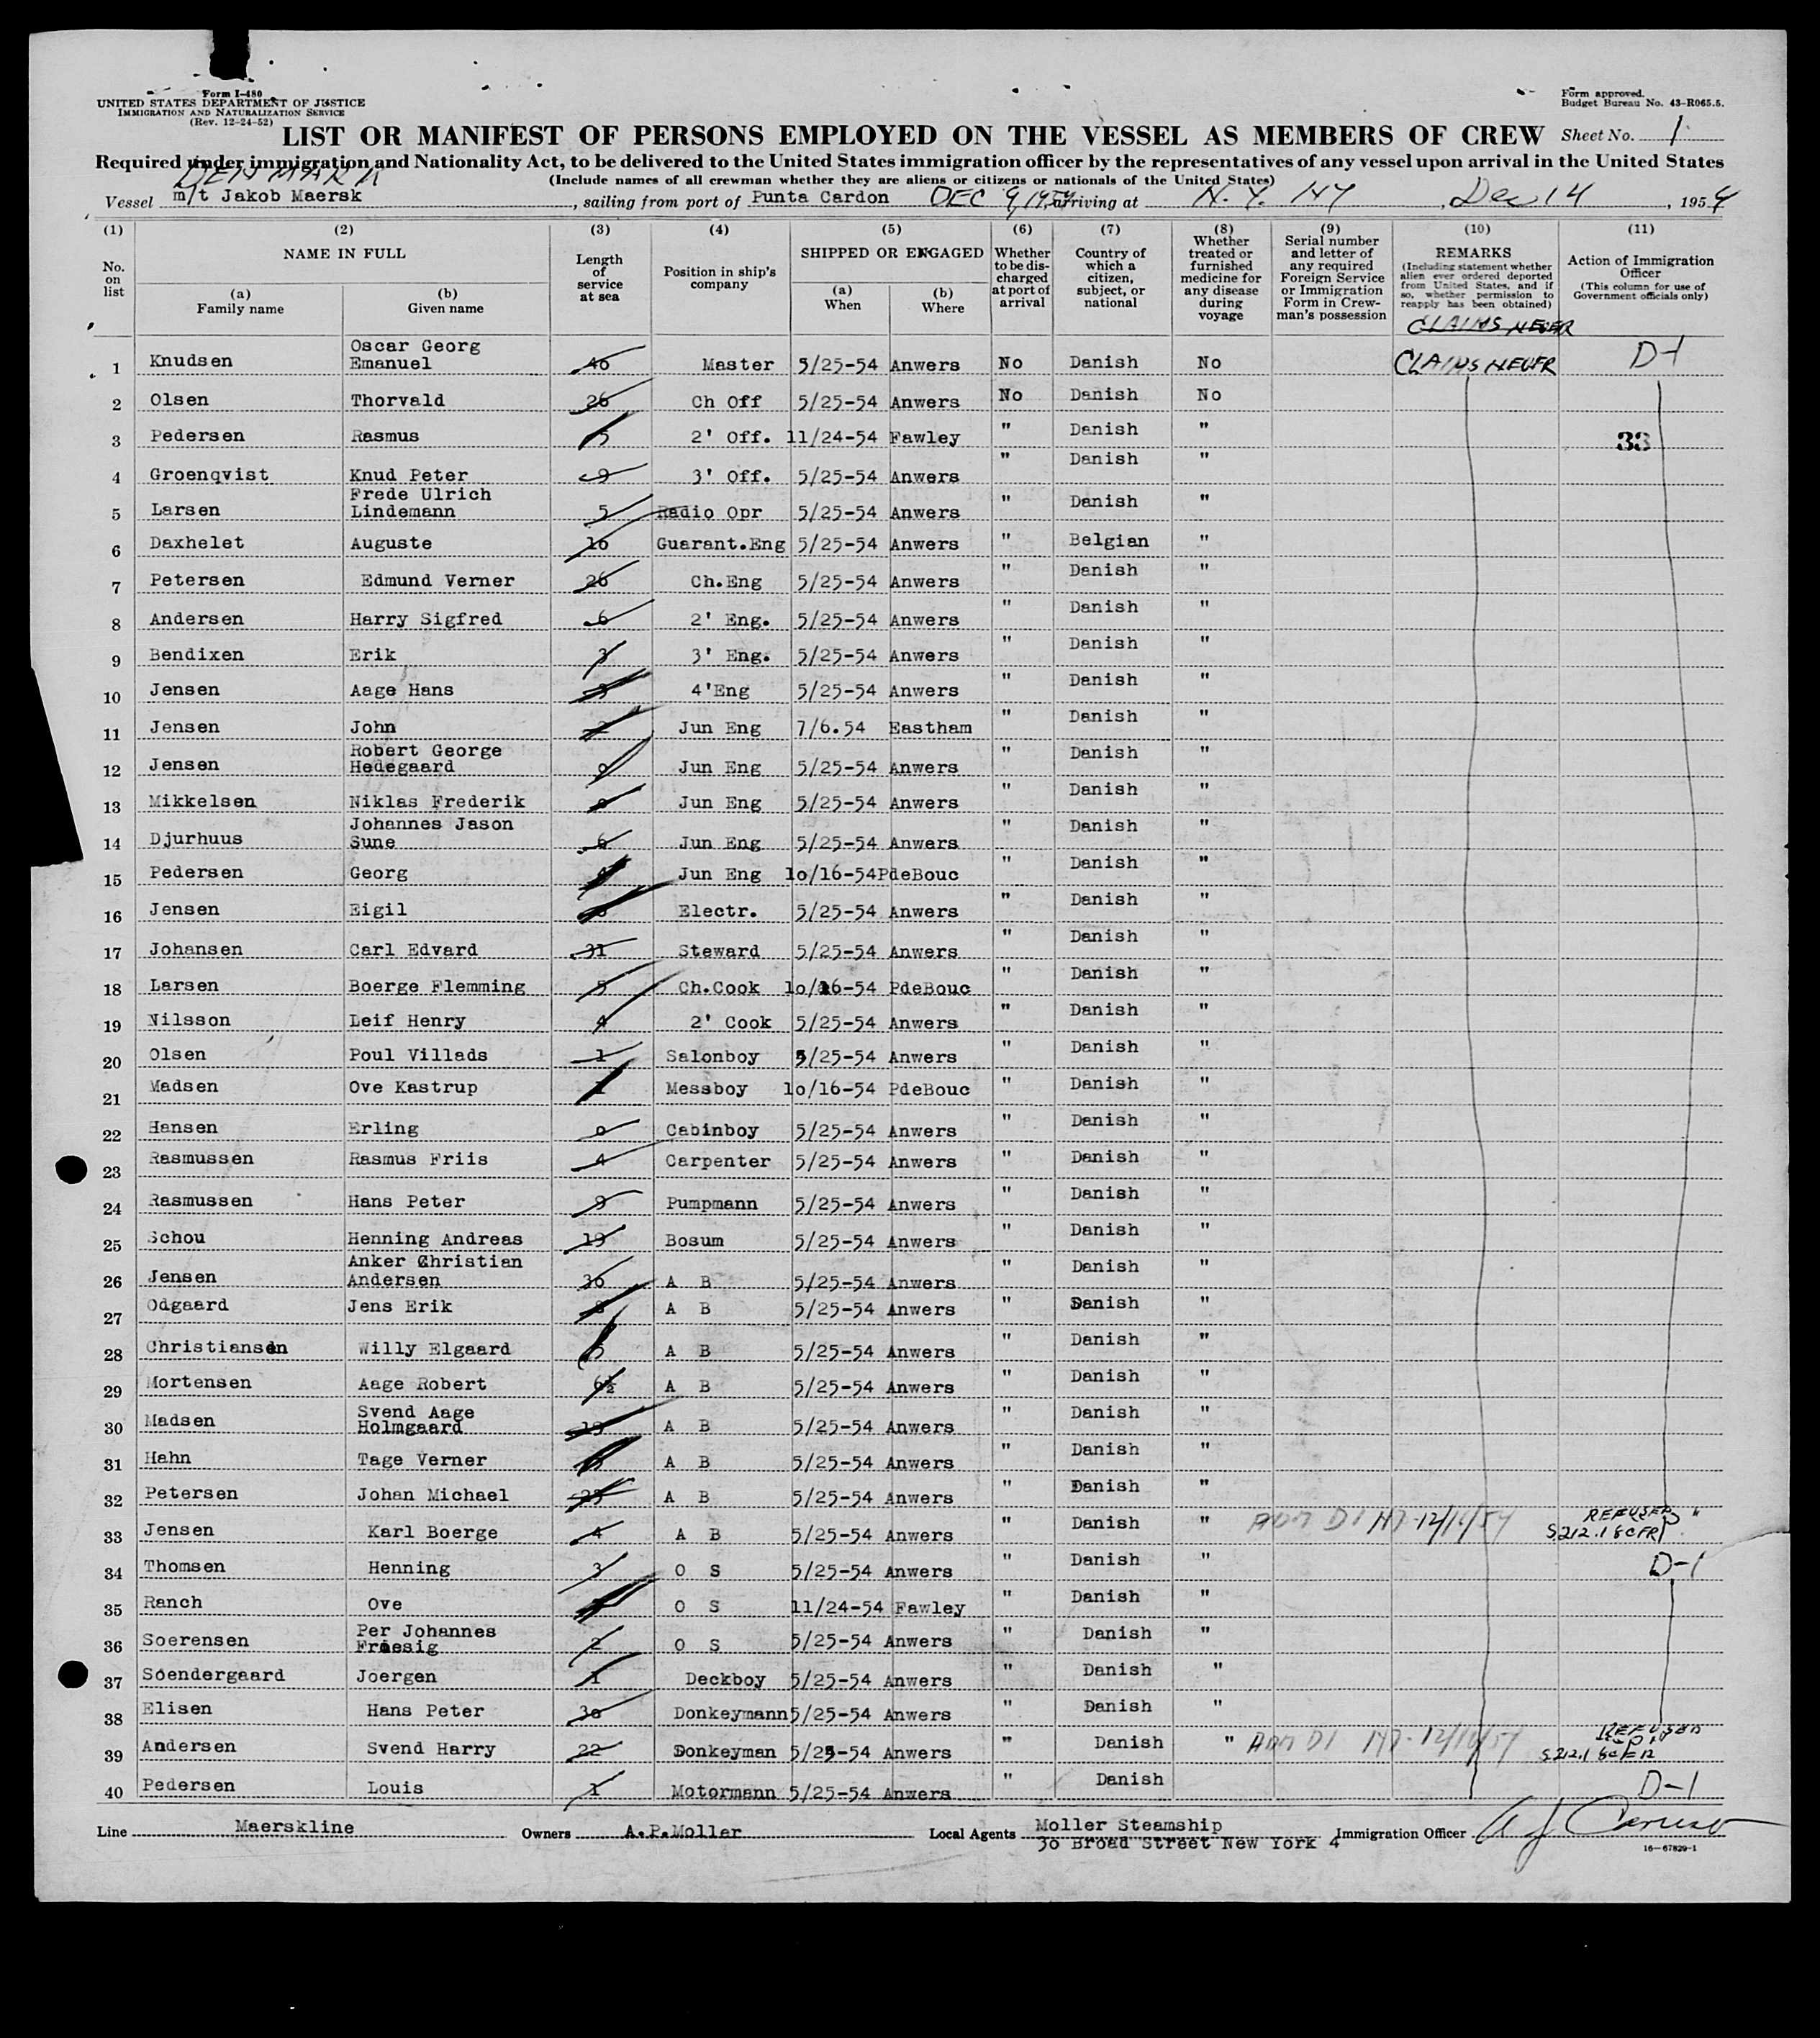 Form I-480
UNITED STATES DEPARTMENT OF JUSTICE
IMMIGRATION AND NATURALIZATION SERVICE
(Rev. 12-24-52)
Form approved.
Budget Bureau No. 43-R065.5.
LIST OR MANIFEST OF PERSONS EMPLOYED ON THE VESSEL AS MEMBERS OF CREW Sheet No. 1
Required under immigration and Nationality Act, to be delivered to the United States immigration officer by the representatives of any vessel upon arrival in the United States
DENMARK (Include names of all crewman whether they are aliens or citizens or nationals of the United States)
Vessel m/t Jakob Maersk, sailing from port of Punta Cardon DEC 9, 1954 arriving at N.Y. NY, Dec 14, 1954
(1) (2) (3) (4) (5) (6) (7) (8) (9) (10) (11)
No. on list
NAME IN FULL
(a) Family name
(b) Given name
Length of service at sea
Position in ship's company
SHIPPED OR ENGAGED
(a) When
(b) Where
Whether to be discharged at port of arrival
Country of which a citizen, subject, or national
Whether treated or furnished medicine for any disease during voyage
Serial number and letter of any required Foreign Service or Immigration Form in Crewman's possession
REMARKS
(Including statement whether alien ever ordered deported from United States, and if so, whether permission to reapply has been obtained)
Action of Immigration Officer
(This column for use of Government officials only)
CLAIMS NEVER
1 Knudsen Oscar Georg Emanuel 40 Master 5/25-54 Anwers No Danish No CLAIMS NEVER D-1
2 Olsen Thorvald 26 Ch Off 5/25-54 Anwers No Danish No
3 Pedersen Rasmus 5 2' Off. 11/24-54 Fawley " Danish " 33
4 Groenqvist Knud Peter 9 3' Off. 5/25-54 Anwers " Danish "
5 Larsen Frede Ulrich Lindemann 5 Radio Opr 5/25-54 Anwers " Danish "
6 Daxhelet Auguste 16 Guarant.Eng 5/25-54 Anwers " Belgian "
7 Petersen Edmund Verner 26 Ch.Eng 5/25-54 Anwers " Danish "
8 Andersen Harry Sigfred 6 2' Eng. 5/25-54 Anwers " Danish "
9 Bendixen Erik 3 3' Eng. 5/25-54 Anwers " Danish "
10 Jensen Aage Hans 4'Eng 5/25-54 Anwers " Danish "
11 Jensen John 2 Jun Eng 7/6.54 Eastham " Danish "
12 Jensen Robert George Hedegaard o Jun Eng 5/25-54 Anwers " Danish "
13 Mikkelsen Niklas Frederik Jun Eng 5/25-54 Anwers " Danish "
14 Djurhuus Johannes Jason Sune 6 Jun Eng 5/25-54 Anwers " Danish "
15 Pedersen Georg Jun Eng 1o/16-54 PdeBouc " Danish "
16 Jensen Eigil Electr. 5/25-54 Anwers " Danish "
17 Johansen Carl Edvard 31 Steward 5/25-54 Anwers " Danish "
18 Larsen Boerge Flemming 5 Ch.Cook 1o/16-54 PdeBouc " Danish "
19 Nilsson Leif Henry 4 2' Cook 5/25-54 Anwers " Danish "
20 Olsen Poul Villads 1 Salonboy 5/25-54 Anwers " Danish "
21 Madsen Ove Kastrup 1 Messboy 1o/16-54 PdeBouc " Danish "
22 Hansen Erling o Cabinboy 5/25-54 Anwers " Danish "
23 Rasmussen Rasmus Friis 4 Carpenter 5/25-54 Anwers " Danish "
24 Rasmussen Hans Peter 9 Pumpmann 5/25-54 Anwers " Danish "
25 Schou Henning Andreas 19 Bosum 5/25-54 Anwers " Danish "
26 Jensen Anker Christian Andersen 36 A B 5/25-54 Anwers " Danish "
27 Odgaard Jens Erik A B 5/25-54 Anwers " Danish "
28 Christiansen Willy Elgaard A B 5/25-54 Anwers " Danish "
29 Mortensen Aage Robert 6½ A B 5/25-54 Anwers " Danish "
30 Madsen Svend Aage Holmgaard 19 A B 5/25-54 Anwers " Danish "
31 Hahn Tage Verner A B 5/25-54 Anwers " Danish "
32 Petersen Johan Michael 23 A B 5/25-54 Anwers " Danish "
33 Jensen Karl Boerge 4 A B 5/25-54 Anwers " Danish " ADM D1 NY 12/16/54 REFUSED S212.1 8CFR "
34 Thomsen Henning 3 O S 5/25-54 Anwers " Danish " D-1
35 Ranch Ove O S 11/24-54 Fawley " Danish "
36 Soerensen Per Johannes Friesig 2 O S 5/25-54 Anwers " Danish "
37 Soendergaard Joergen 1 Deckboy 5/25-54 Anwers " Danish "
38 Elisen Hans Peter 3o Donkeymann 5/25-54 Anwers " Danish "
39 Andersen Svend Harry 22 Donkeyman 5/25-54 Anwers " Danish " ADM D1 NY 12/16/54 REFUSED S212.1
40 Pedersen Louis 1 Motormann 5/25-54 Anwers " Danish D-1
Line Maerskline Owners A.P.Moller Local Agents Moller Steamship
3o Broad Street New York 4 Immigration Officer A J Caruso
16—67829-1